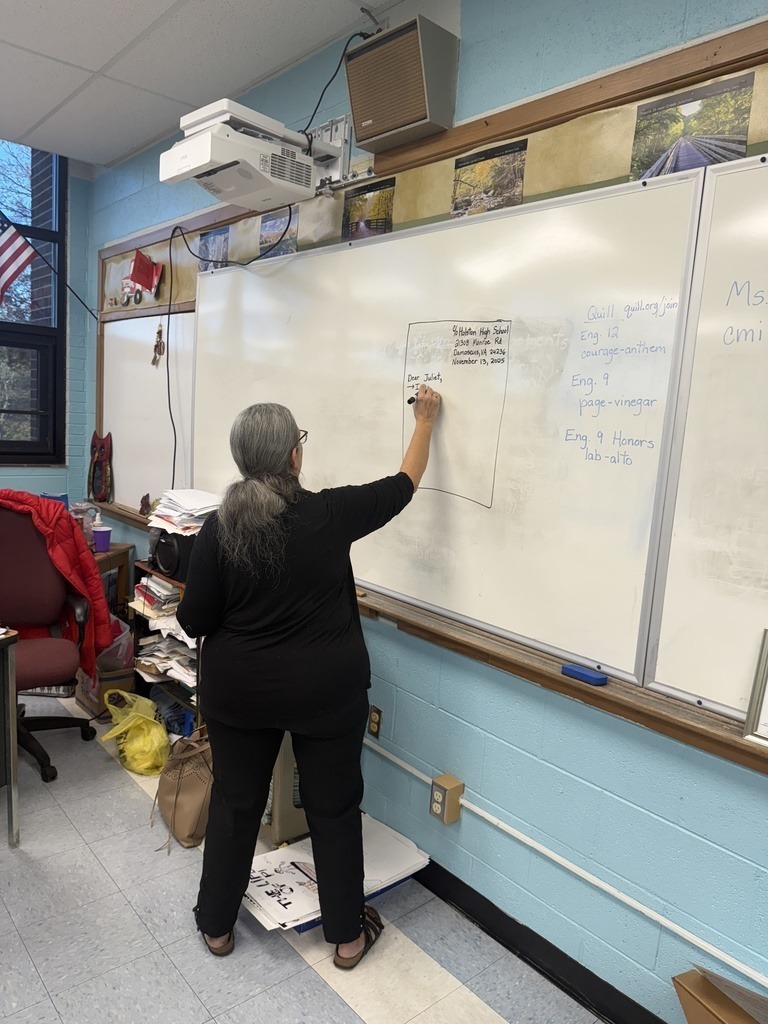 c/o Holston High School
21308 Monroe Rd
Damascus, VA 24236
November 13, 2025
Dear Juliet,
→ I
Quill quill.org/join
Eng. 12
courage-anthem
Eng. 9
page-vinegar
Eng. 9 Honors
lab-alto
Ms.
cmi
THE LIFE
OF PI